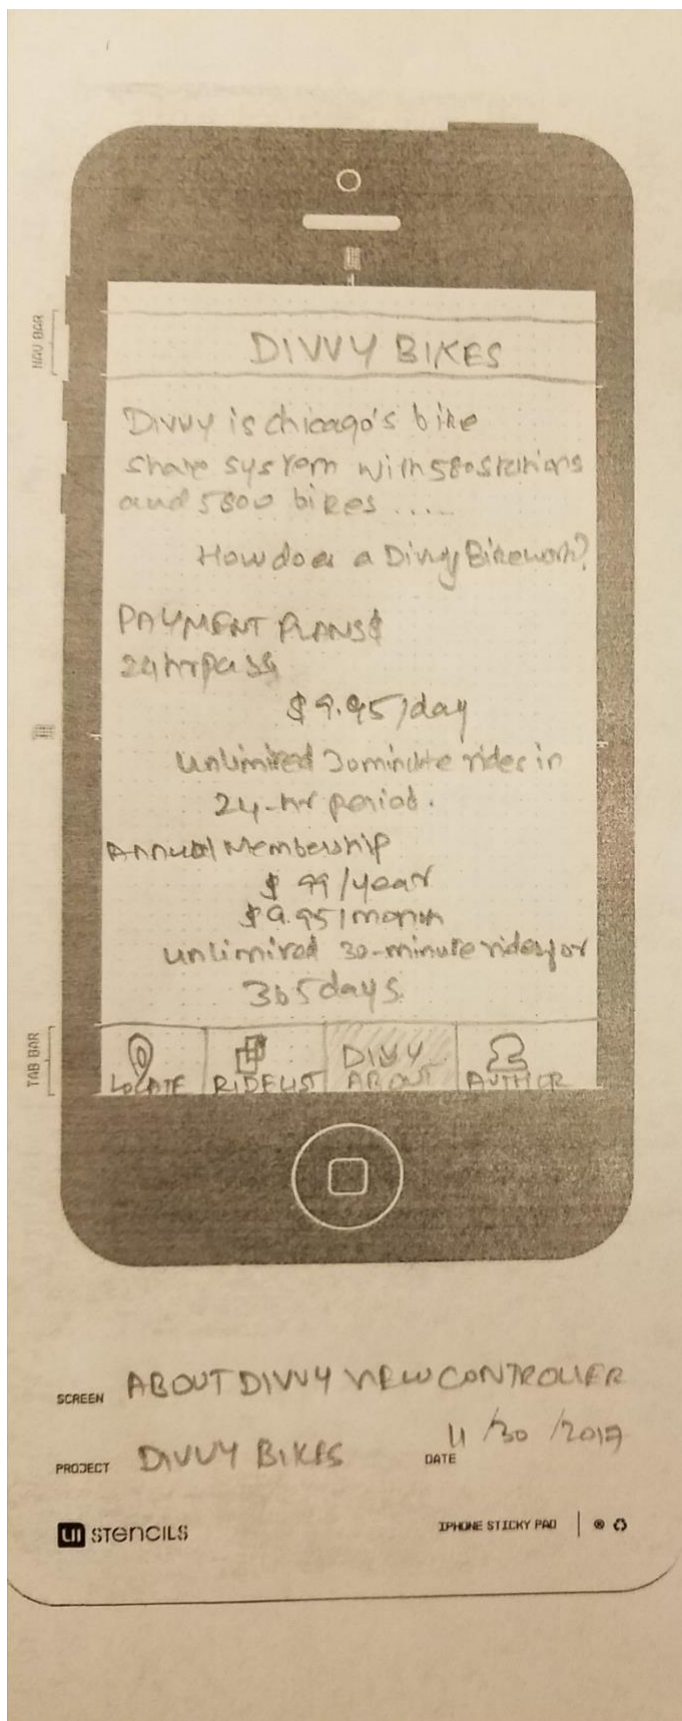 NAV BAR
DIVVY BIKES
Divvy is chicago's bike
share system with 580 stations
and 5800 bikes .....
How does a Divvy Bike work?
PAYMENT PLANS $
24 hr pass
$9.95/day
Unlimited 30 minute rides in
24-hr period.
Annual Membership
$99/year
$9.95/month
Unlimited 30-minute rides for
365 days.
TAB BAR
LOCATE RIDELIST DIVVY ABOUT AUTHOR
SCREEN ABOUT DIVVY VIEW CONTROLLER
PROJECT DIVVY BIKES DATE 11/30/2017
UI STENCILS IPHONE STICKY PAD